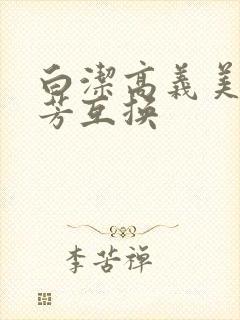 白潔高義美
芳互換
李苦禅